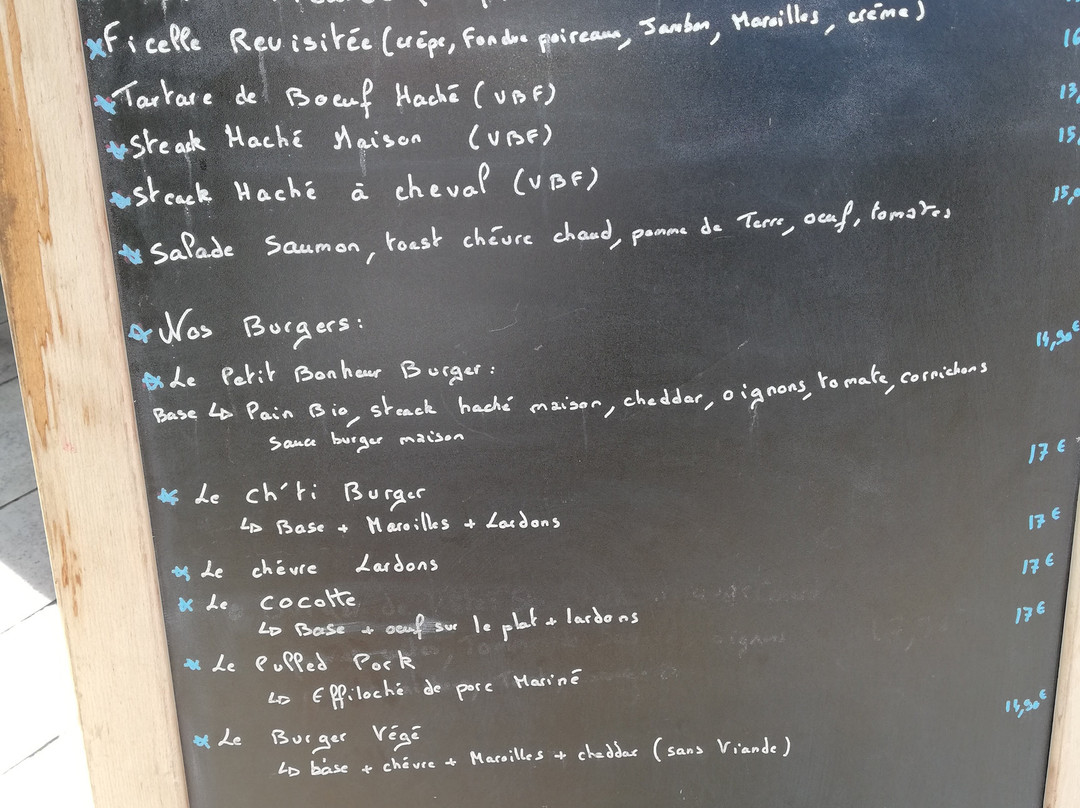 Ficelle Revisitée (crêpe, Fondue poireaux, Jambon, Maroilles, crème) 16
Tartare de Boeuf Haché (VBF) 13,
Steack Haché Maison (VBF) 15,
Steack Haché à cheval (VBF) 15,
Salade Saumon, toast chèvre chaud, pomme de Terre, oeuf, tomates
Nos Burgers:
Le Petit Bonheur Burger: 14,90€
Base ↳ Pain Bio, steack haché maison, cheddar, oignons, tomate, cornichons
sauce burger maison
Le Ch'ti Burger 17€
↳ Base + Maroilles + Lardons
Le chèvre Lardons 17€
Le cocotte 17€
↳ Base + oeuf sur le plat + lardons
Le Pulled Pork 17€
↳ Effiloché de porc Mariné
Le Burger Végé 14,90€
↳ base + chèvre + Maroilles + cheddar (sans Viande)